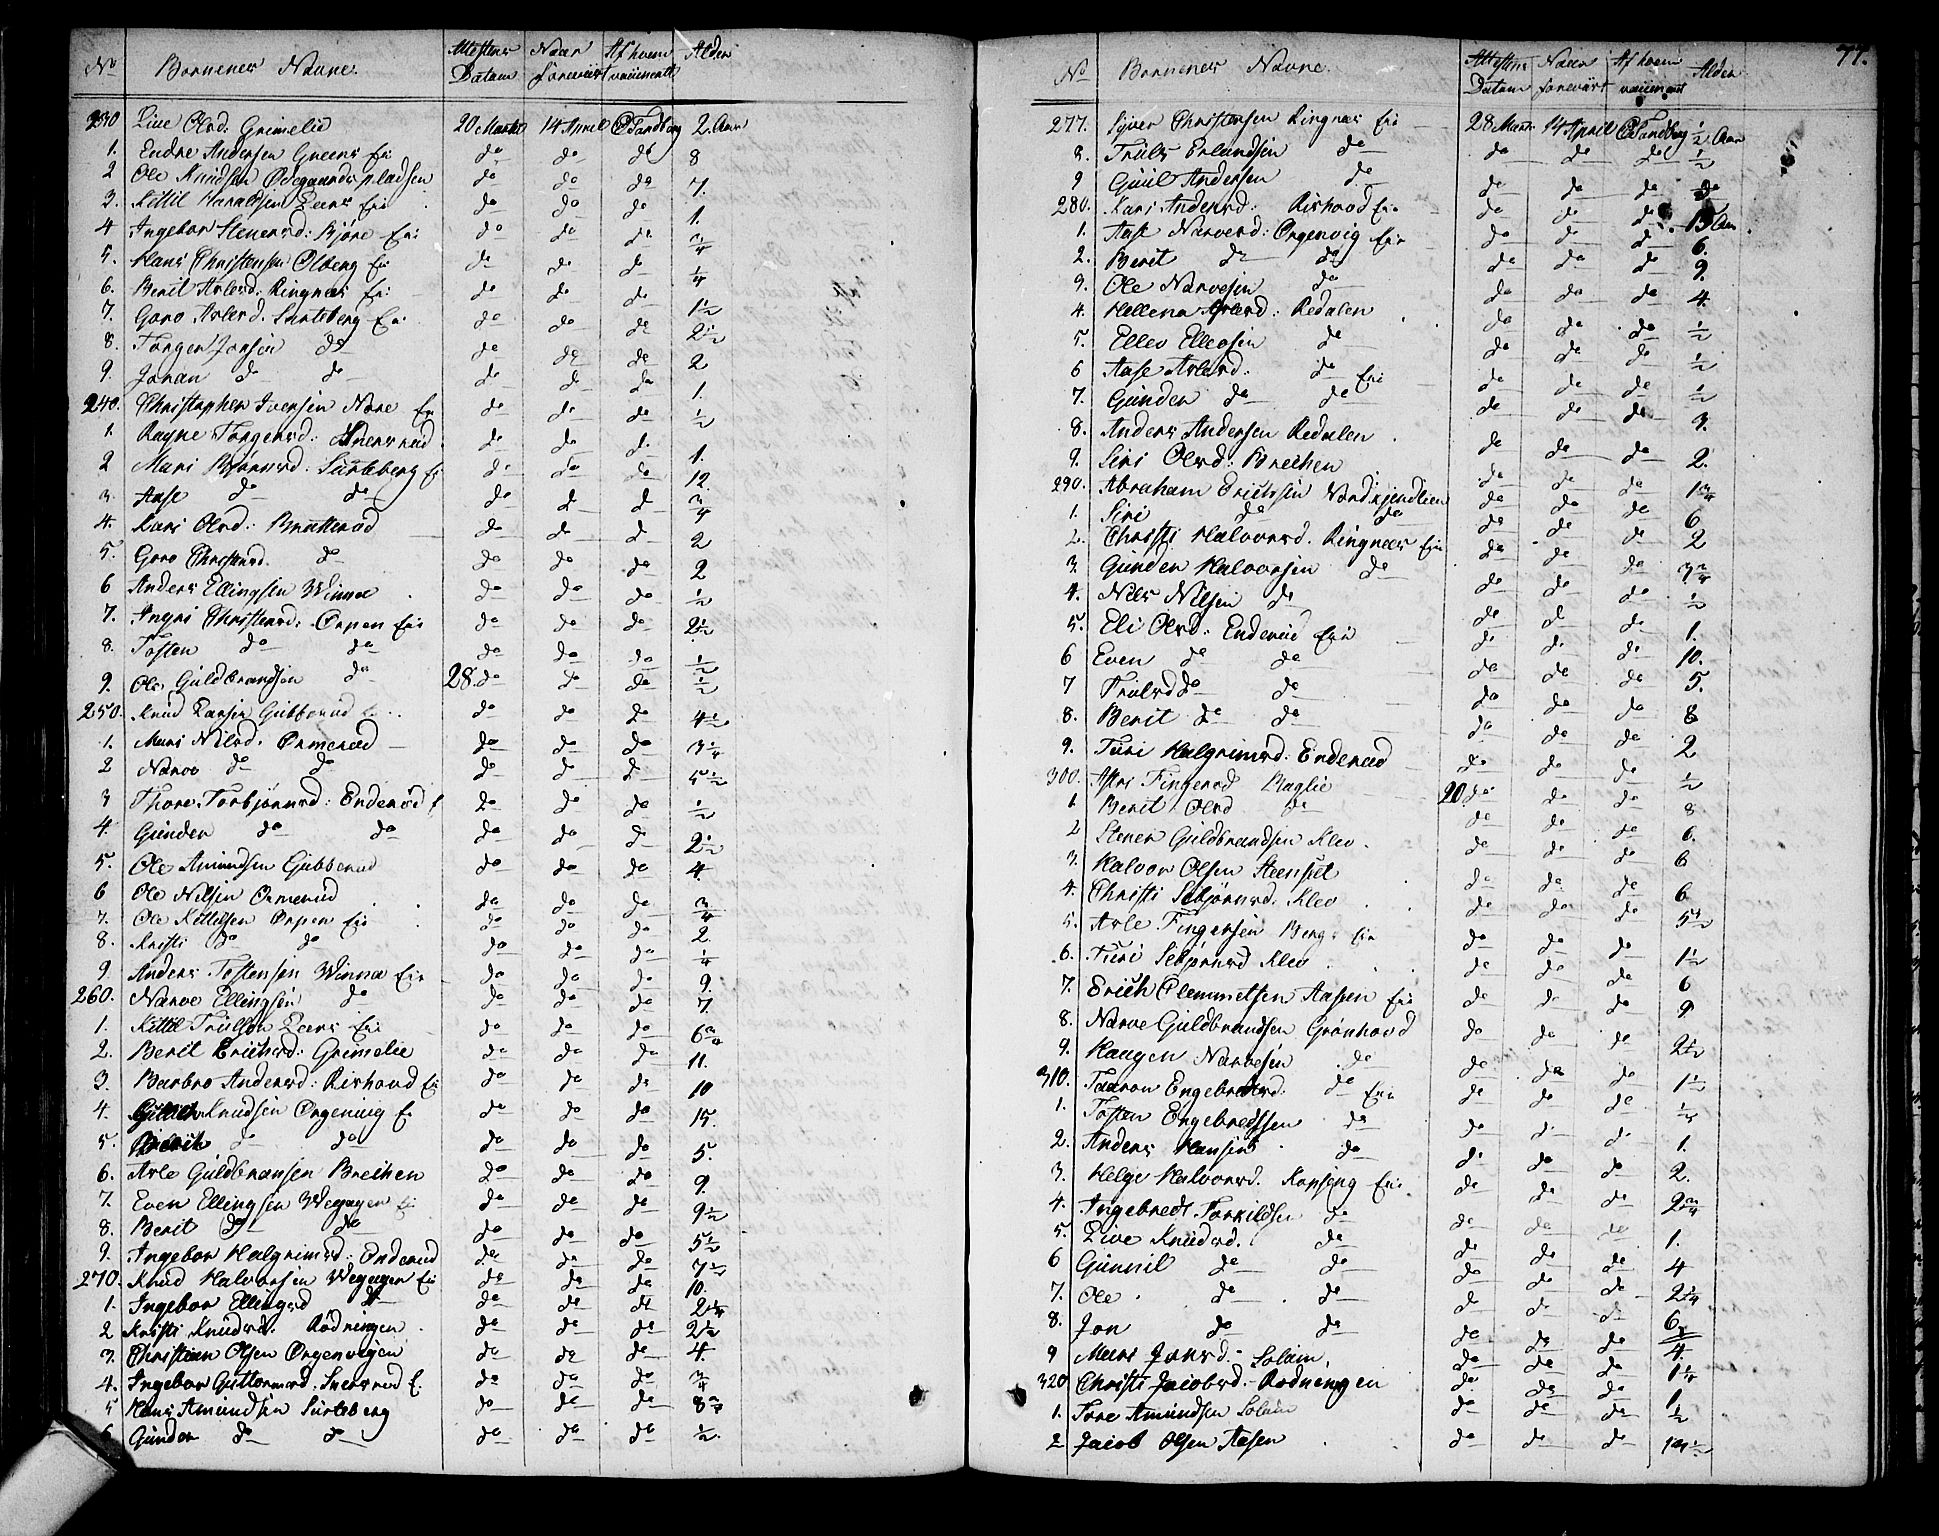 No Børnenes Navne. Attestens Datum Naar forevüst Af hvem vaccineret Alder
230 Live Olsd: Grimelie 20 Marts 14 April P Tandberg 2. Aar
1. Endre Andersen Green Eie do do do 8
2 Ole Knudsen Ødegaardspladsen do do do 7.
3. Kittil Haraldsen Leers Eie do do do 1.
4 Ingebor Steners d: Bjøre Eie do do do 3/4
5. Hans Christensen Olberg Eie do do do 1/4
6. Berit Arlesd: Ringnæs Eie do do do 1 1/2
7. Goro Arlesd. Surteberg Eie do do do 2 1/2
8. Torger Jonsen do do do do 2
9. Joran do do do do do 1.
240. Christopher Iversen Nore Eie do do do 1/2
1. Ragne Torgersd: Snersrud do do do 1.
2 Mari Bjørnsd: Surteberg Eie do do do 12
3. Aase do do do do do 3/4
4. Kari Olsd: Bratterud do do do 2
5. Goro Christensd. do do do do 2
6 Anders Ellingsen Winnæ do do do 1/2
7. Ingri Christensd: Ørpen Eie do do do 2 1/2
8. Tosten do do do do do 1/2
9. Ole Guldbrandsen do 28. do do do 1/2
250. Knud Larsen Gubberud do do do 4 1/2
1. Mari Nilsd: Ormerud do do do 3 1/4
2 Narve do do do do do 5 1/2
3 Thore Torbjørnsd: Enderud do do do 1/2
4. Gunder do do do do do 2 1/2
5. Ole Amundsen Gubberud do do do 4.
6 Ole Nilsen Ormerud do do do 3/4
7. Ole Kittilsen Ørpen Eie do do do 2
8. Kristi do do do do do 1/4
9. Anders Tostensen Winnæ Eie do do do 9.
260. Narve Ellingsen do do do do 7.
1. Kittil Trulsen Leers Eie do do do 6 3/4
2. Berit Erichsd: Grimelie do do do 11.
3. Barbro Andersd: Rishovd Eie do do do 10
4. Knudsen Ørgenvig Eie do do do 15.
5. do do do do do 5.
6. Arle Guldbransen Breihen do do do 9.
7. Even Ellingsen Wegagen Eie do do do 9 1/2
8. Berit do do do do do 5 1/2
9. Ingebor Halgrimsd: Enderud do do do 7 1/2
270. Knud Halvorsen Wegagen Eie do do do 10.
1. Ingebor Ellingsd do do do do 2 1/4
2 Kristi Knudsd. Rødningen do do do 2 1/2
3. Christian Olsen Ørgenvigen do do do 4.
4. Ingebor Guttormsd. Snersrud E. do do do 3/4
5 Hans Amundsen Surteberg do do do 8 3/4
6 Gunder do do do do do 1/2.
77.
No Børnenes Navne. Attestens Datum Naar forevüst Af hvem vaccineret Alder
277. Syver Christensen Ringnæs Eie 28 Marts 14 April P Tandberg 1/2 Aar
8. Truls Erlandsen do do do do 1/2
9 Guul Andersen do do do do do
280. Kari Andersd: Rishovd Eie do do do 13 Aar
1. Aase Narvesd: Ørgenvig Eie do do do 6.
2. Berit do do do do do 9.
3. Ole Narvesen do do do do 4
4. Hellena Arlesd: Redalen do do do 1/2
5. Ellev Ellevsen do do do do 1/2
6 Aase Arlesd: do Eie do do do 1/2
7. Gunder do do do do do 3.
8. Anders Andersen Redalen do do do 2.
9. Siri Olsd: Breihen do do do 1 3/4
290. Abraham Erichsen Nordkjendlien do do do 6
1. Siri do do do do do 2
2. Christi Halvorsd. Ringnæs Eie do do do 3 3/4
3. Gunder Halvorsen do do do do 1/2
4. Nils Nilsen do do do do 1.
5. Eli Olsd: Enderud Eie do do do 10.
6 Even do do do do do 5.
7 Trulsd do do do do do 8
8. Berit do do do do do 2
9. Turi Halgrimsd: Enderud do do do 1/2
300. Astri Fingersd Baglie 20 do do do 8
1. Berit Olsd do do do do 6.
2 Stener Guldbrandsen Klev. do do do 6
3. Halvor Olsen Steenset do do do 6
4. Christi Sebjørnsd. Klev do do do 5 1/2
5. Arle Fingersen Berge Eie do do do 1 1/2
6. Turi Sebjørnsd Klev do do do 6
7. Erich Clemmetsen Aaspen Eie do do do 9
8. Narve Guldbrandsen Grønhovd do do do 2 1/2
9. Haagen Narvesen do do do do 1 1/2
310. Taaron Engebretsd: do Eie do do do 1/4
1. Tosten Engebredtsen do do do do 1.
2. Anders Hansen do do do do 2.
3. Helge Halvorsd. Kopseng Eie do do do 2 3/4
4. Ingebredt Torkildsen do do do do 1.
5. Live Knudsd. do do do do 4
6 Gunnil do do do do do 2 1/4
7. Ole do do do do do 6
8. Jon do do do do do 4.
9 Mari Jonsd: Solum, do do do 1 1/4
320 Christi Jacobsd. Rødningen do do do 1
1. Tore Amundsen Solum do do do 1/2
2 Jacob Olsen Aasen do do do 14 1/2